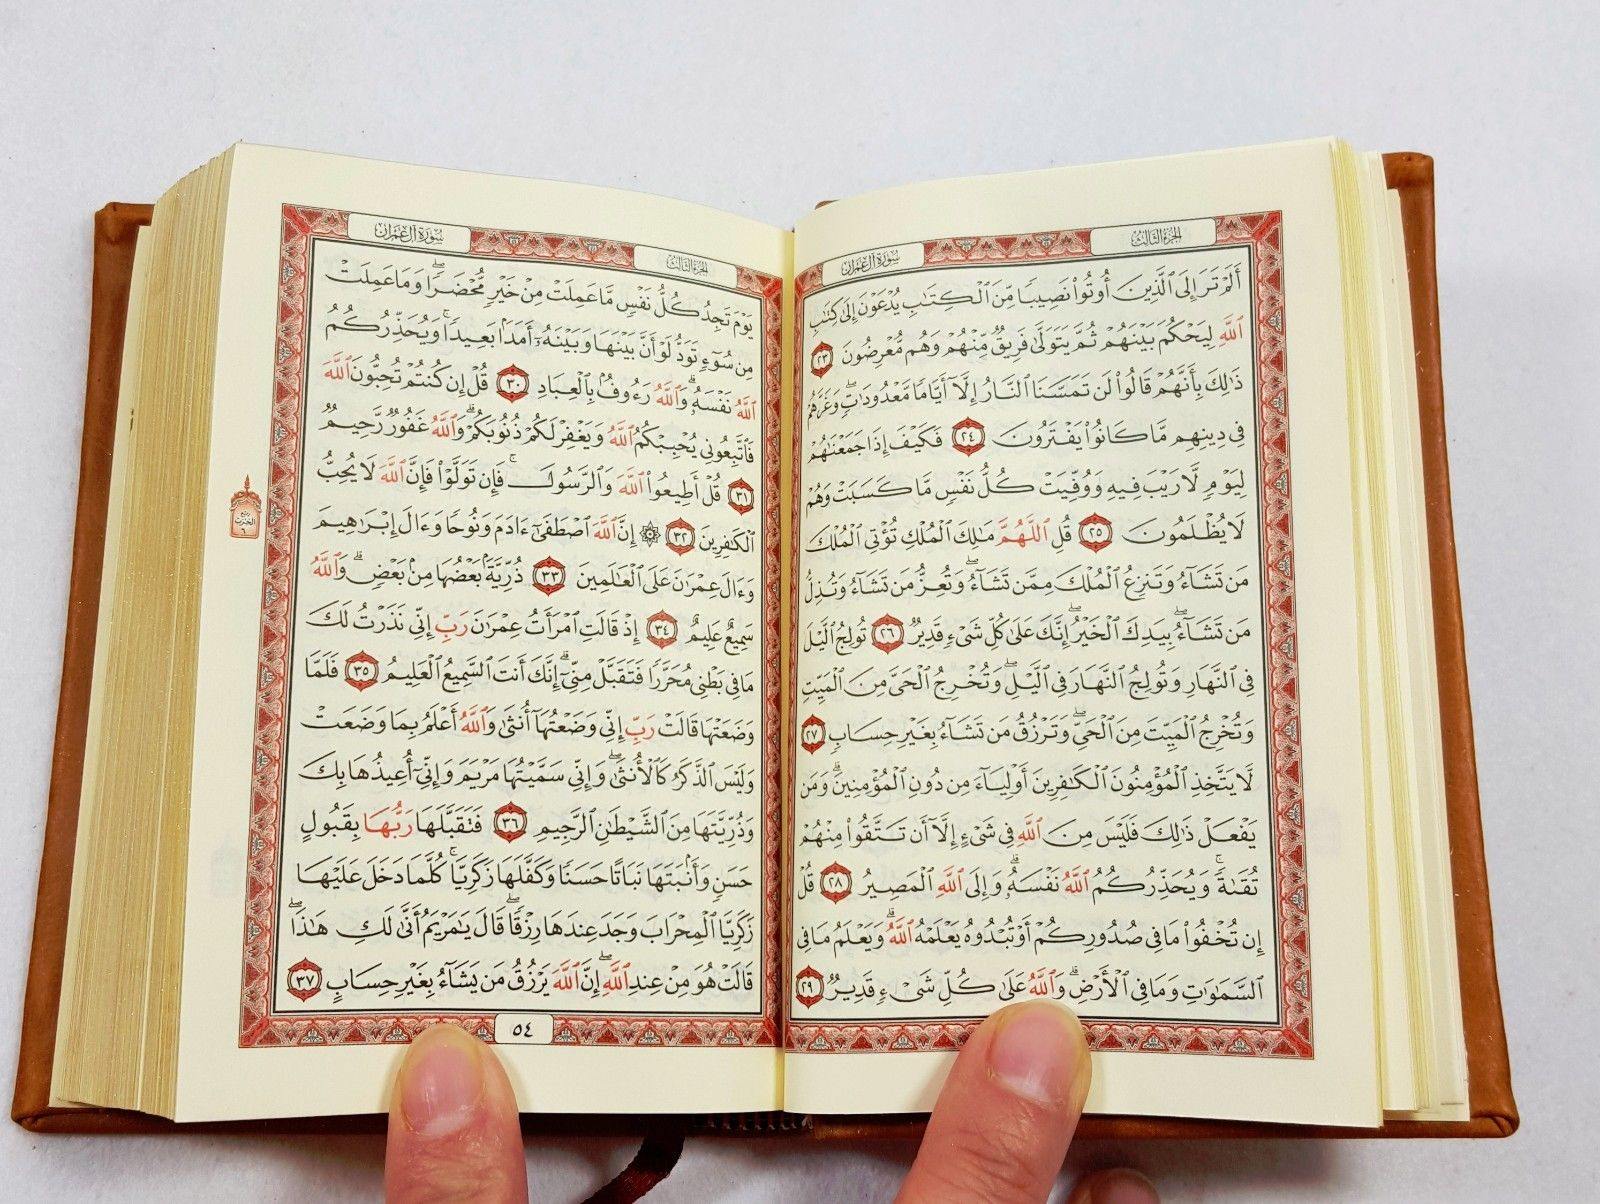 سورة آل عمران
الجزء الثالث
أَلَمۡ تَرَ إِلَى ٱلَّذِينَ أُوتُواْ نَصِيبٗا مِّنَ ٱلۡكِتَٰبِ يُدۡعَوۡنَ إِلَىٰ كِتَٰبِ
ٱللَّهِ لِيَحۡكُمَ بَيۡنَهُمۡ ثُمَّ يَتَوَلَّىٰ فَرِيقٞ مِّنۡهُمۡ وَهُم مُّعۡرِضُونَ ٢٣
ذَٰلِكَ بِأَنَّهُمۡ قَالُواْ لَن تَمَسَّنَا ٱلنَّارُ إِلَّآ أَيَّامٗا مَّعۡدُودَٰتٖۖ وَغَرَّهُمۡ
فِي دِينِهِم مَّا كَانُواْ يَفۡتَرُونَ ٢٤ فَكَيۡفَ إِذَا جَمَعۡنَٰهُمۡ
لِيَوۡمٖ لَّا رَيۡبَ فِيهِ وَوُفِّيَتۡ كُلُّ نَفۡسٖ مَّا كَسَبَتۡ وَهُمۡ
لَا يُظۡلَمُونَ ٢٥ قُلِ ٱللَّهُمَّ مَٰلِكَ ٱلۡمُلۡكِ تُؤۡتِي ٱلۡمُلۡكَ
مَن تَشَآءُ وَتَنزِعُ ٱلۡمُلۡكَ مِمَّن تَشَآءُۖ وَتُعِزُّ مَن تَشَآءُ وَتُذِلُّ
مَن تَشَآءُۖ بِيَدِكَ ٱلۡخَيۡرُۖ إِنَّكَ عَلَىٰ كُلِّ شَيۡءٖ قَدِيرٞ ٢٦ تُولِجُ ٱلَّيۡلَ
فِي ٱلنَّهَارِ وَتُولِجُ ٱلنَّهَارَ فِي ٱلَّيۡلِۖ وَتُخۡرِجُ ٱلۡحَيَّ مِنَ ٱلۡمَيِّتِ
وَتُخۡرِجُ ٱلۡمَيِّتَ مِنَ ٱلۡحَيِّۖ وَتَرۡزُقُ مَن تَشَآءُ بِغَيۡرِ حِسَابٖ ٢٧
لَّا يَتَّخِذِ ٱلۡمُؤۡمِنُونَ ٱلۡكَٰفِرِينَ أَوۡلِيَآءَ مِن دُونِ ٱلۡمُؤۡمِنِينَۖ وَمَن
يَفۡعَلۡ ذَٰلِكَ فَلَيۡسَ مِنَ ٱللَّهِ فِي شَيۡءٍ إِلَّآ أَن تَتَّقُواْ مِنۡهُمۡ
تُقَىٰةٗۗ وَيُحَذِّرُكُمُ ٱللَّهُ نَفۡسَهُۥۗ وَإِلَى ٱللَّهِ ٱلۡمَصِيرُ ٢٨ قُلۡ
إِن تُخۡفُواْ مَا فِي صُدُورِكُمۡ أَوۡ تُبۡدُوهُ يَعۡلَمۡهُ ٱللَّهُۗ وَيَعۡلَمُ مَا فِي
ٱلسَّمَٰوَٰتِ وَمَا فِي ٱلۡأَرۡضِۗ وَٱللَّهُ عَلَىٰ كُلِّ شَيۡءٖ قَدِيرٞ ٢٩
الجزء الثالث
سورة آل عمران
يَوۡمَ تَجِدُ كُلُّ نَفۡسٖ مَّا عَمِلَتۡ مِنۡ خَيۡرٖ مُّحۡضَرٗا وَمَا عَمِلَتۡ
مِن سُوٓءٖ تَوَدُّ لَوۡ أَنَّ بَيۡنَهَا وَبَيۡنَهُۥٓ أَمَدَۢا بَعِيدٗاۗ وَيُحَذِّرُكُمُ
ٱللَّهُ نَفۡسَهُۥۗ وَٱللَّهُ رَءُوفُۢ بِٱلۡعِبَادِ ٣٠ قُلۡ إِن كُنتُمۡ تُحِبُّونَ ٱللَّهَ
فَٱتَّبِعُونِي يُحۡبِبۡكُمُ ٱللَّهُ وَيَغۡفِرۡ لَكُمۡ ذُنُوبَكُمۡۗ وَٱللَّهُ غَفُورٞ رَّحِيمٞ
٣١ قُلۡ أَطِيعُواْ ٱللَّهَ وَٱلرَّسُولَۖ فَإِن تَوَلَّوۡاْ فَإِنَّ ٱللَّهَ لَا يُحِبُّ
ٱلۡكَٰفِرِينَ ٣٢ ۞ إِنَّ ٱللَّهَ ٱصۡطَفَىٰٓ ءَادَمَ وَنُوحٗا وَءَالَ إِبۡرَٰهِيمَ
وَءَالَ عِمۡرَٰنَ عَلَى ٱلۡعَٰلَمِينَ ٣٣ ذُرِّيَّةَۢ بَعۡضُهَا مِنۢ بَعۡضٖۗ وَٱللَّهُ
سَمِيعٌ عَلِيمٌ ٣٤ إِذۡ قَالَتِ ٱمۡرَأَتُ عِمۡرَٰنَ رَبِّ إِنِّي نَذَرۡتُ لَكَ
مَا فِي بَطۡنِي مُحَرَّرٗا فَتَقَبَّلۡ مِنِّيٓۖ إِنَّكَ أَنتَ ٱلسَّمِيعُ ٱلۡعَلِيمُ ٣٥ فَلَمَّا
وَضَعَتۡهَا قَالَتۡ رَبِّ إِنِّي وَضَعۡتُهَآ أُنثَىٰ وَٱللَّهُ أَعۡلَمُ بِمَا وَضَعَتۡ
وَلَيۡسَ ٱلذَّكَرُ كَٱلۡأُنثَىٰۖ وَإِنِّي سَمَّيۡتُهَا مَرۡيَمَ وَإِنِّيٓ أُعِيذُهَا بِكَ
وَذُرِّيَّتَهَا مِنَ ٱلشَّيۡطَٰنِ ٱلرَّجِيمِ ٣٦ فَتَقَبَّلَهَا رَبُّهَا بِقَبُولٍ
حَسَنٖ وَأَنۢبَتَهَا نَبَاتًا حَسَنٗا وَكَفَّلَهَا زَكَرِيَّاۖ كُلَّمَا دَخَلَ عَلَيۡهَا
زَكَرِيَّا ٱلۡمِحۡرَابَ وَجَدَ عِندَهَا رِزۡقٗاۖ قَالَ يَٰمَرۡيَمُ أَنَّىٰ لَكِ هَٰذَاۖ
قَالَتۡ هُوَ مِنۡ عِندِ ٱللَّهِۖ إِنَّ ٱللَّهَ يَرۡزُقُ مَن يَشَآءُ بِغَيۡرِ حِسَابٍ ٣٧
ربع
الحزب
٦
٥٤